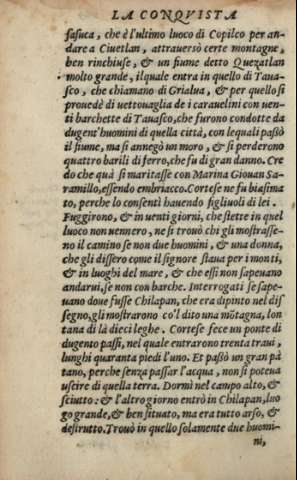 LA CONQVISTA
ſaſuca, che è l'ultimo luoco di Copilco per an-
dare a Ciuetlan, attrauersò certe montagne,
ben rinchiuſe, & un fiume detto Quezatlan
molto grande, ilquale entra in quello di Taua-
ſco, che chiamano di Grialua, & per quello ſi
prouedè di uettouaglia de i carauelini con uen-
ti barchette di Tauaſco, che furono condotte da
dugent'huomini di quella città, con lequali paßò
il fiume, ma ſi annegò un moro, & ſi perderono
quattro barili di ferro, che fu di gran danno. Cre
do che quà ſi maritaſſe con Marina Giouan Sa-
ramillo, eſſendo embriacco. Corteſe ne fu biaſima
to, perche lo conſentì hauendo figliuoli di lei.
Fuggirono, & in uenti giorni, che ſtette in quel
luoco non uennero, ne ſi trouò chi gli moſtraſſe-
no il camino ſe non due huomini, & una donna,
che gli diſſero come il ſignore ſtaua per i monti,
& in luoghi del mare, & che eſſi non ſapeuano
andarui, ſe non con barche. Interrogati ſe ſape-
uano doue fuſſe Chilapan, che era dipinto nel diſ
ſegno, gli moſtrarono co'l dito una mõtagna, lon
tana di là dieci leghe. Corteſe fece un ponte di
dugento paſſi, nel quale entrarono trenta traui,
lunghi quaranta piedi l'uno. Et paßò un gran pà
tano, perche ſenza paſſar l'acqua, non ſi poteua
uſcire di quella terra. Dormì nel campo alto, &
ſciutto: & l'altro giorno entrò in Chilapan, luo
go grande, & ben ſituato, ma era tutto arſo, &
deſtrutto. Trouò in quello ſolamente due huomi-
ni,